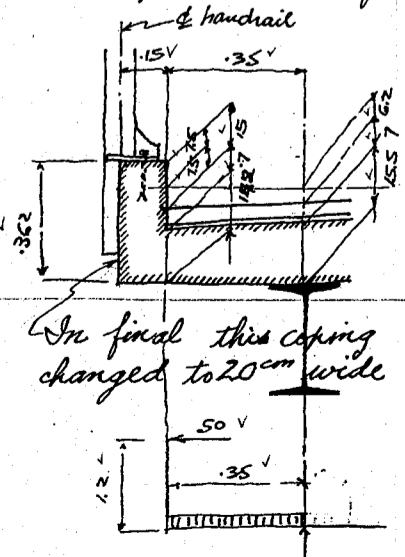 ℄ handrail
.15 ✓
.35 ✓
6.2
7
15.5
15
7
.362
In final this coping
changed to 20cm wide
50 ✓
.35 ✓
1.2 ✓